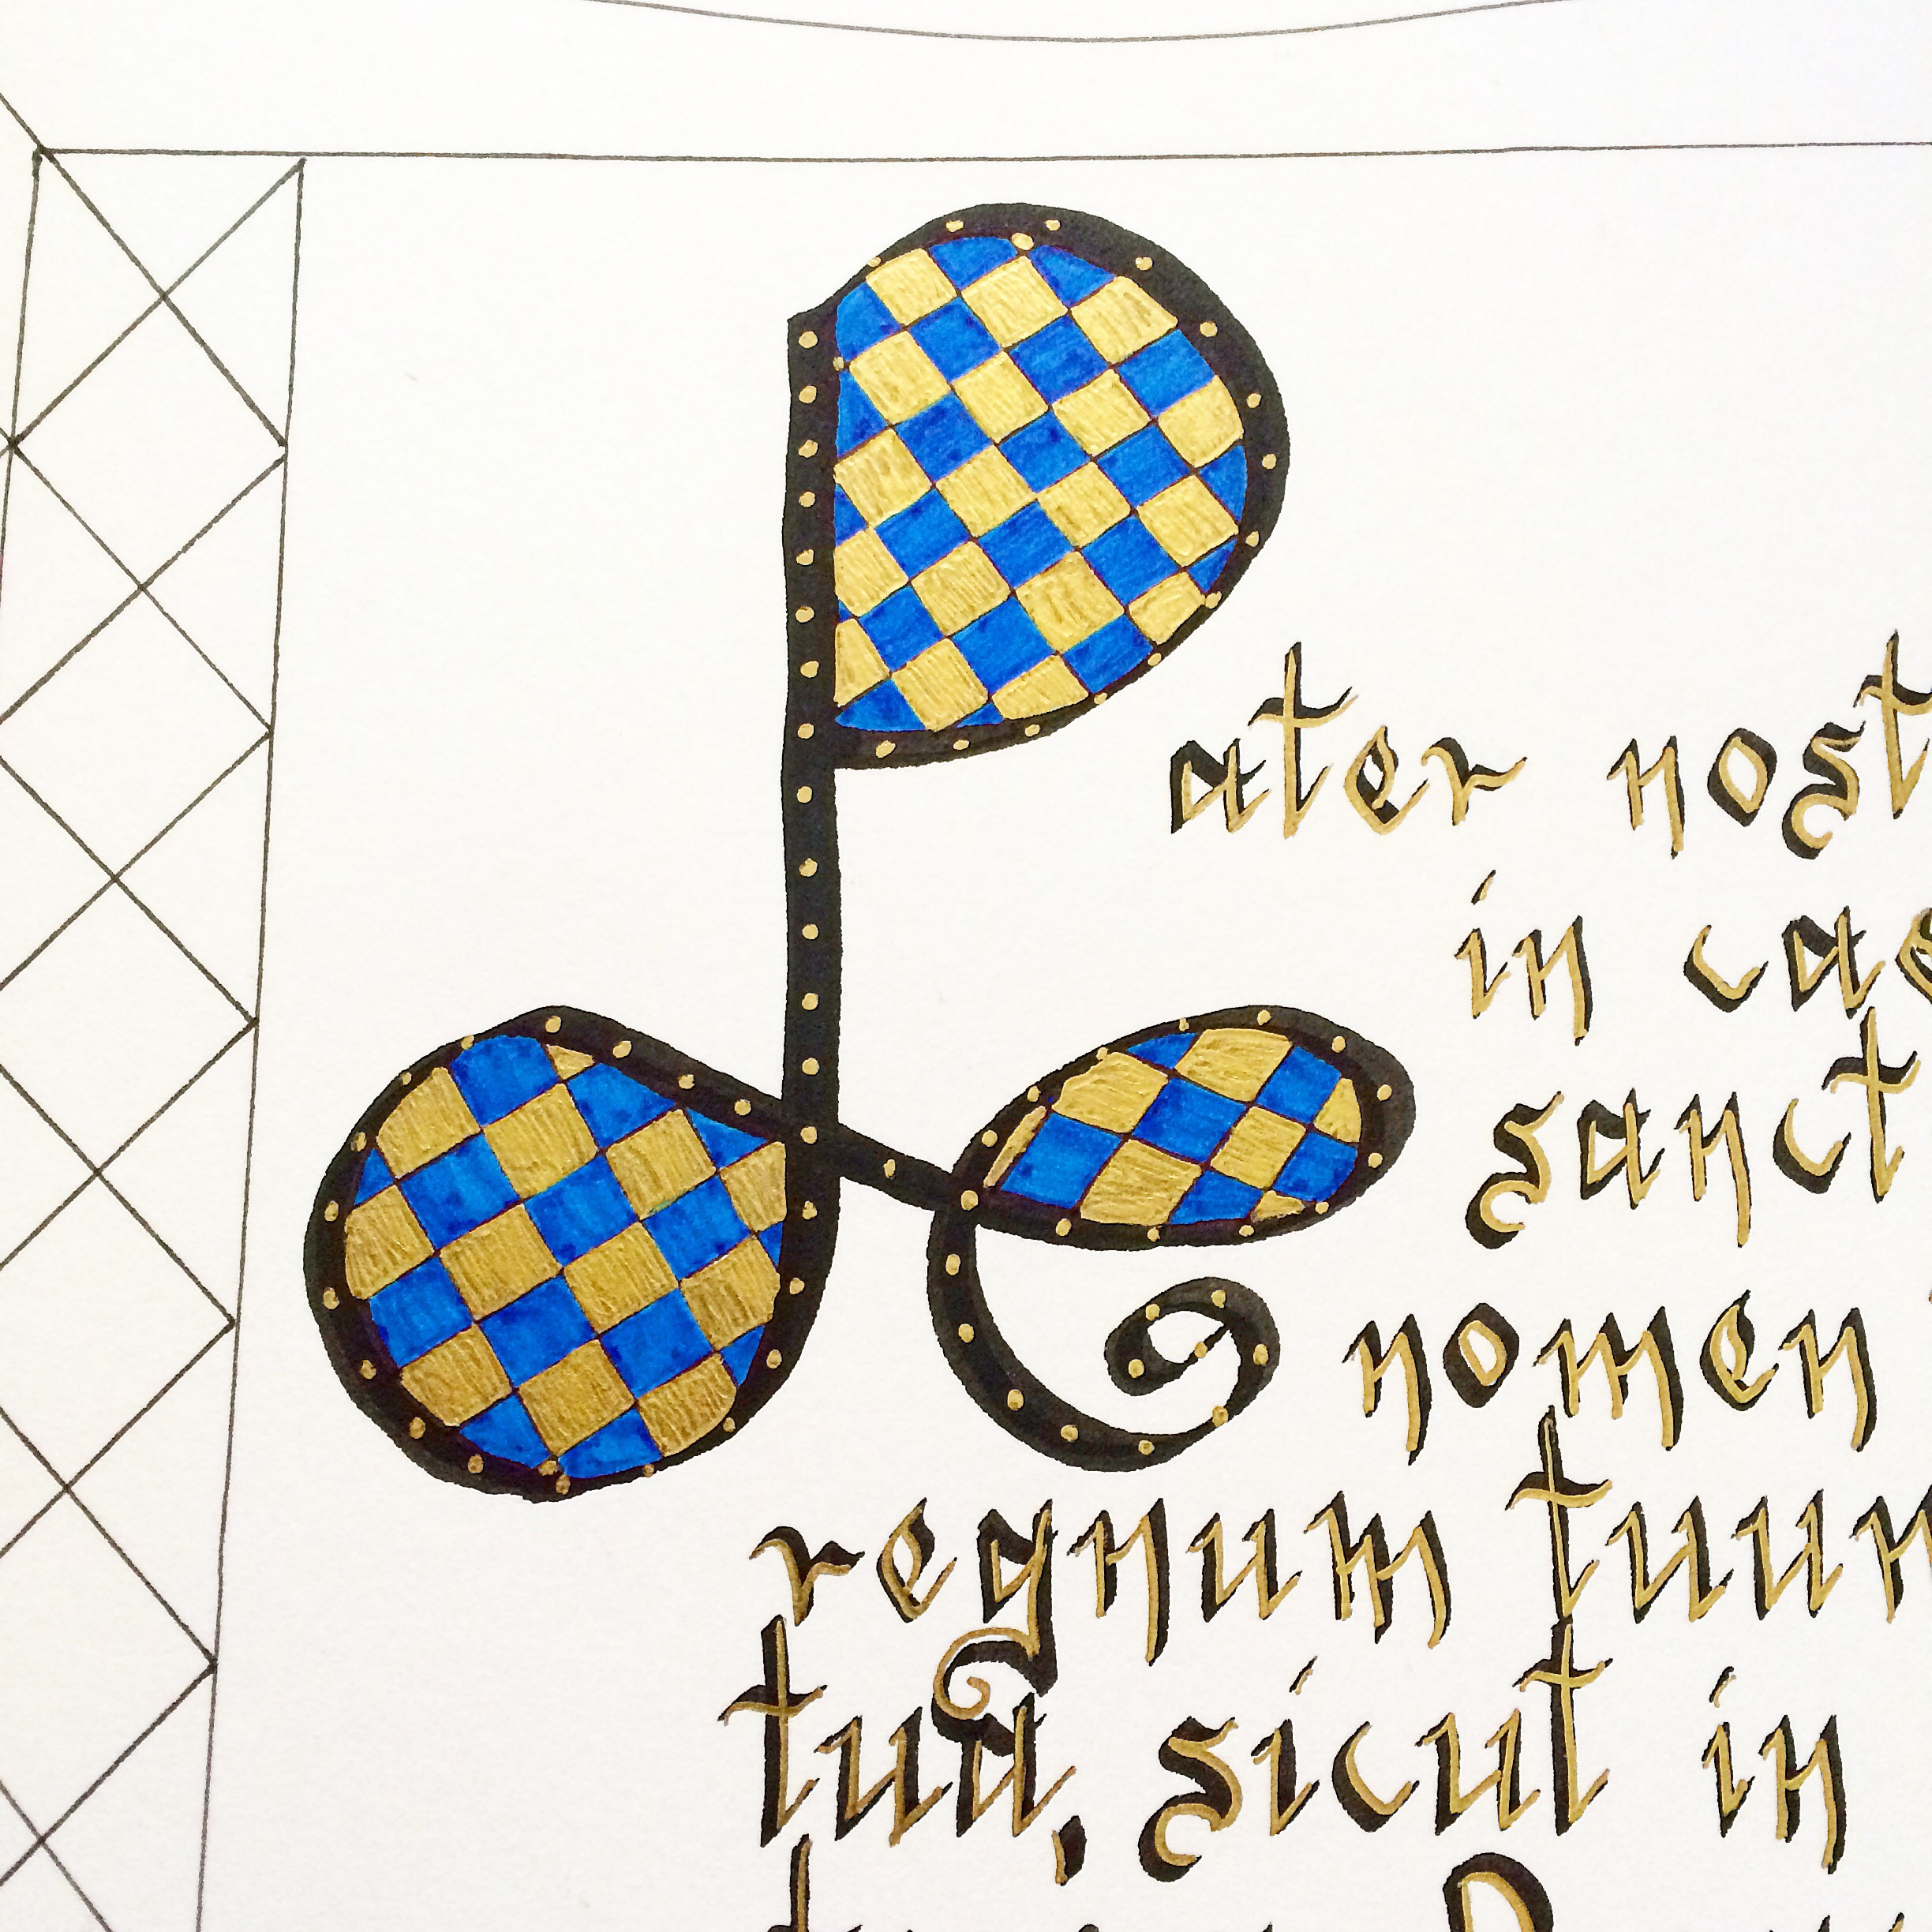 Pater nost
in cae
sanct
nomen
regnum tuum
tua, sicut in